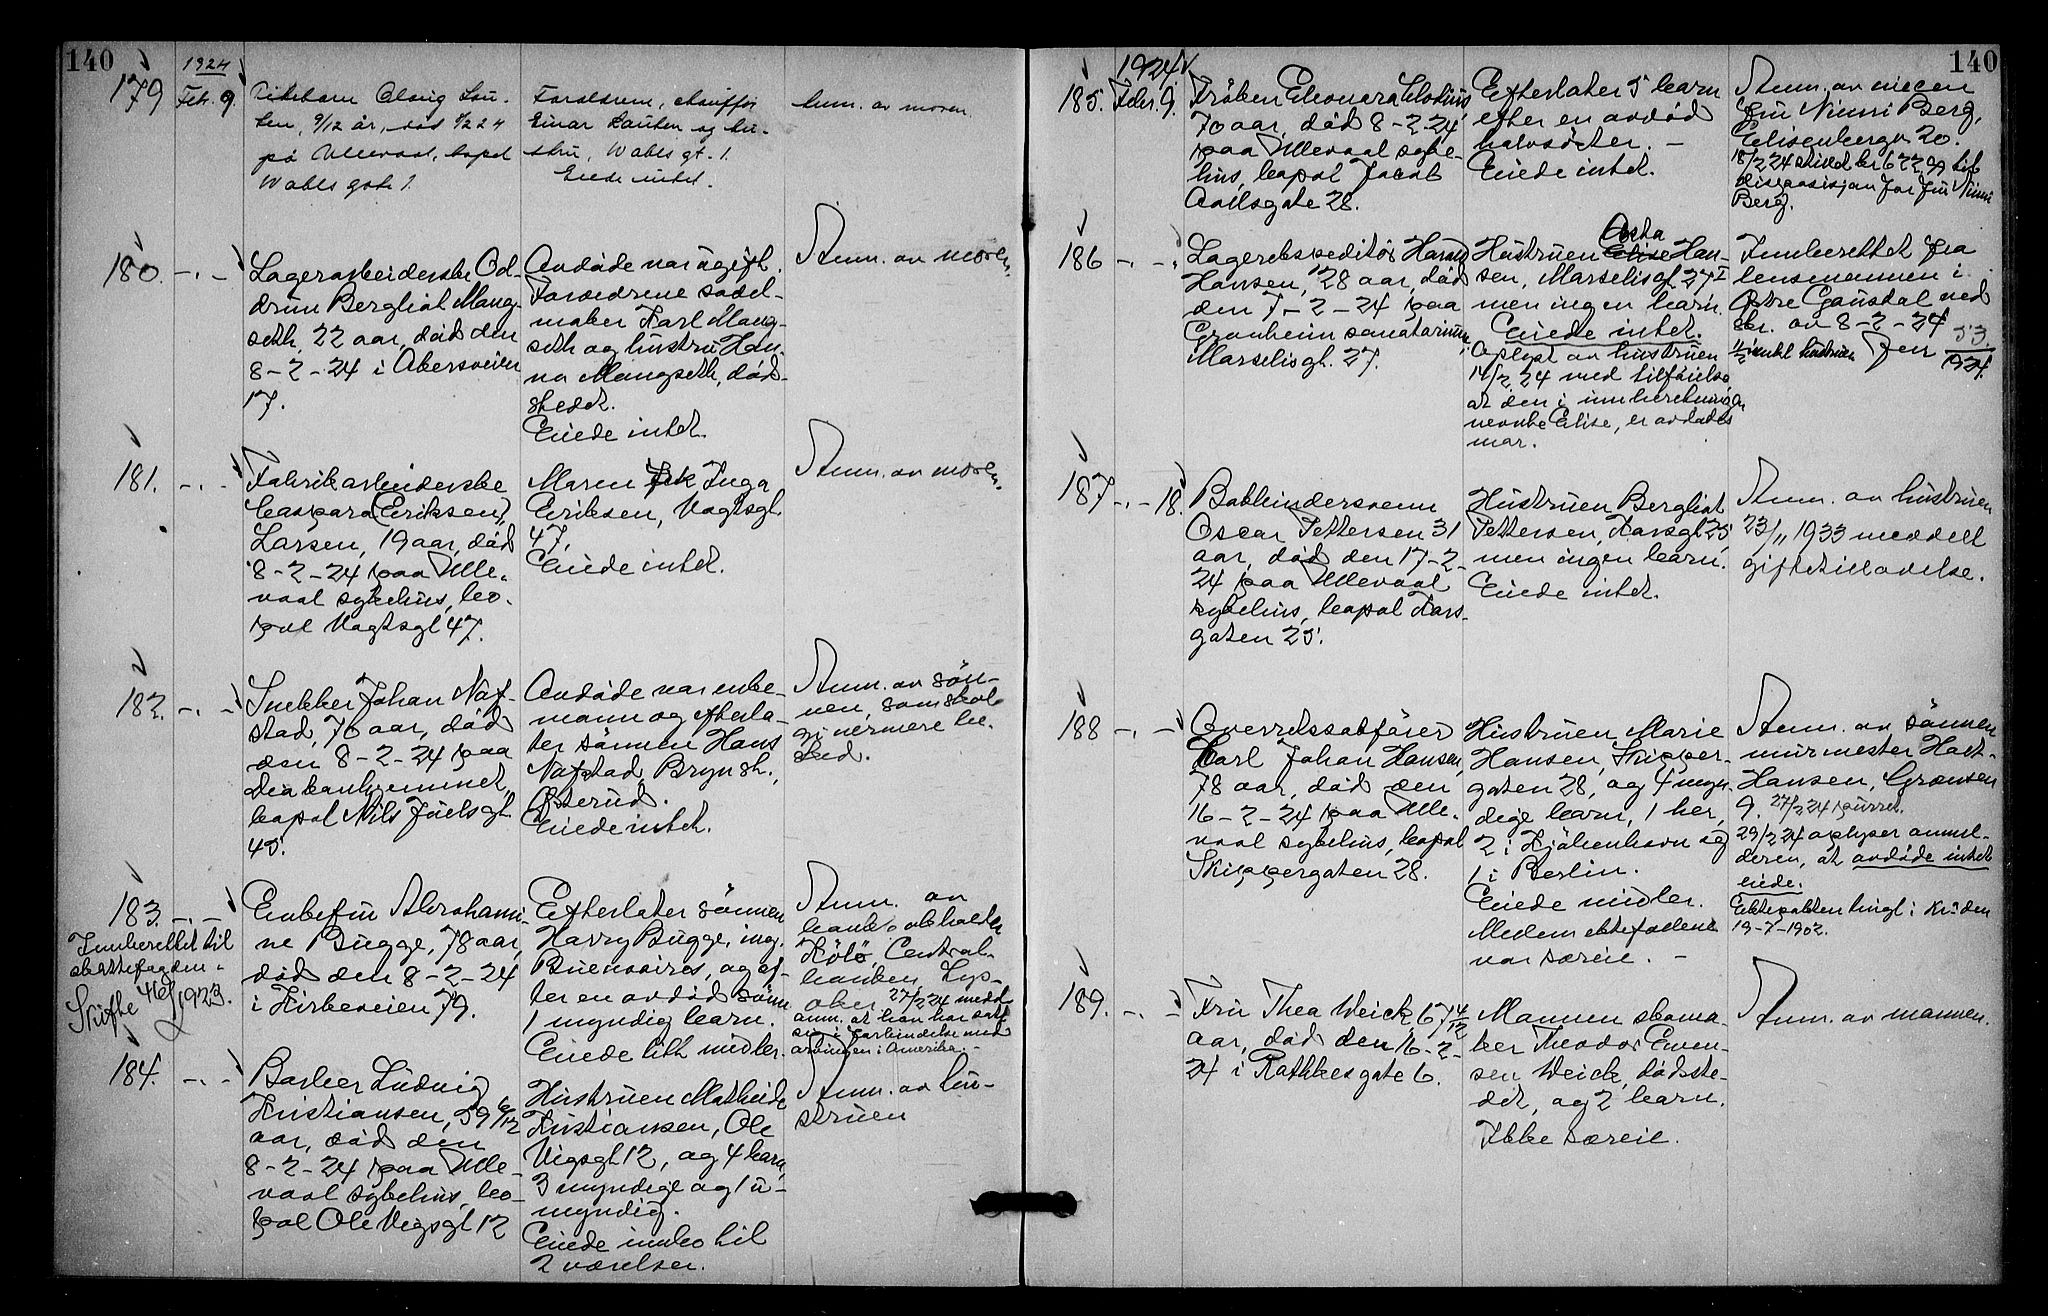 140
179
1924
Feb. 9.
Pikebarn
9/12 år, død
på Ullevaal, bopel
Wabls gate 1.
Foreldrene, chauffør
Einar Lauten og hu-
stru, Wabls gt. 1.
Eiede intet.
Anm. av moren.
180. -.-
Lagerarbeiderske Od-
drun Bergliot Mang-
seth, 22 aar, død den
8-2-24 i Akersveien
17.
Avdøde var ugift.
Forældrene sadel-
maker Karl Mang-
seth og hustru Han-
na Mangseth, død-
stedet.
Eiede intet.
Anm. av moren.
181. -.-
Fabrikarbeiderske
Caspara (Eriksen),
Larsen, 19 aar, død
8-2-24 paa Ulle-
vaal sykehus, bo-
pæl Vogtsgt 47.
Moren Inga
Eriksen, Vogtsgt.
47.
Eiede intet.
Anm. av moren.
182. -.-
Snekker Johan Naf-
stad, 76 aar, død
den 8-2-24 paa
Diakonhjemmet,
bopæl Nils Juelsgt
45.
Avdøde var enke-
mann og efterla-
ter sønnen Hans
Nafstad, Bryn st.,
Østerud.
Eiede intet.
Anm. av søn-
nen, som skal
gi nærmere be-
sked.
183. -.-
Innberettet til
skattefogden.
Skifte 1923.
Enkefru Abrahami-
ne Bugge, 78 aar,
død den 8-2-24
i Kirkeveien 79.
Efterlater sønnen
Harry Bugge, ing.
Buenosaires, og ef-
ter en avdød sønn
1 myndig barn.
Eiede litt midler.
Anm. av
bankbokholder
Kölö, Central-
banken, Lys-
aker. 27/2 24 medd.
anm. at han har satt
sig i forbindelse med
arvingen i Amerika.-
184. -.-
Barber Ludvig
Kristiansen, 59 6/12
aar, død den
8-2-24 paa Ulle-
vaal sykehus, bo-
pæl Ole Vigsgt 12
Hustruen Mathilde
Kristiansen, Ole
Vigsgt 12, og 4 barn,
3 myndige og 1 u-
myndig.
Eiede innbo til
2 værelser.
Anm. av hu-
struen
140
1924
185. Febr. 9.
Frøken Eleonora Clodius,
70 aar, død 8-2-24
paa Ullevaal syke-
hus, bopæl Jacob
Aallsgate 28.
Efterlater 5 barn
efter en avdød
halvsøster. -
Eiede intet.
Anm. av niecen
fru Ninni Berg,
Elisenbergv 20.
18/2 24 stillet kr 622,99 til
disposisjon for fru Ninni
Berg.
186 -.-
Lagerekspeditør Harald
Hansen, 28 aar, død
den 7-2-24 paa
Granheim sanatorium,
Marselisgt. 27.
Asta
Hustruen Elise Han-
sen, Marselisgt 27 I
men ingen barn.
Eiede intet.
Oplyst av hustruen
14/2 24 med tilføielse
at den i innberetningen
nevnte Elise, er avdødes
mor.
Innberettet fra
lensmannen i
Østre Gausdal ved
skr. av 8-2-24
Jnr 53./1924.
187 -.- 18.
Bokbindersvenn
Oscar Pettersen 31
aar, død den 17-2-
24 paa Ullevaal
sykehus, bopæl Kors-
gaten 25.
Hustruen Bergliot
Pettersen, Korsgt 25
men ingen barn.
Eiede intet.
Anm. av hustruen
23/11 1933 meddelt
giftetillatelse.
188 -.-
Overretssakfører
Karl Johan Hansen,
78 aar, død den
16-2-24 paa Ulle-
vaal sykehus, bopæl
Skippergaten 28.
Hustruen Marie
Hansen, Skipper-
gaten 28, og 4 myn-
dige barn, 1 her,
2 i Kjøbenhavn og
1 i Berlin.
Eiede midler.
Mellem ektefællene
var særeie. -
Anm. av sønnen
murmester Holt-
Hansen, Grænsen
9. 27/2 24 purret.
29/2 24 oplyser anmel-
deren, at avdøde intet
eiede.
Ektepakten tingl i Kr.a den
19-7-1902.
189. -.-
Fru Thea Weick, 67 4/12
aar, død den 16-2-
24 i Rathkesgate 6.
Mannen skoma-
ker Theodor Even-
sen Weick, dødste-
det, og 2 barn.
Ikke særeie.
Anm. av mannen.